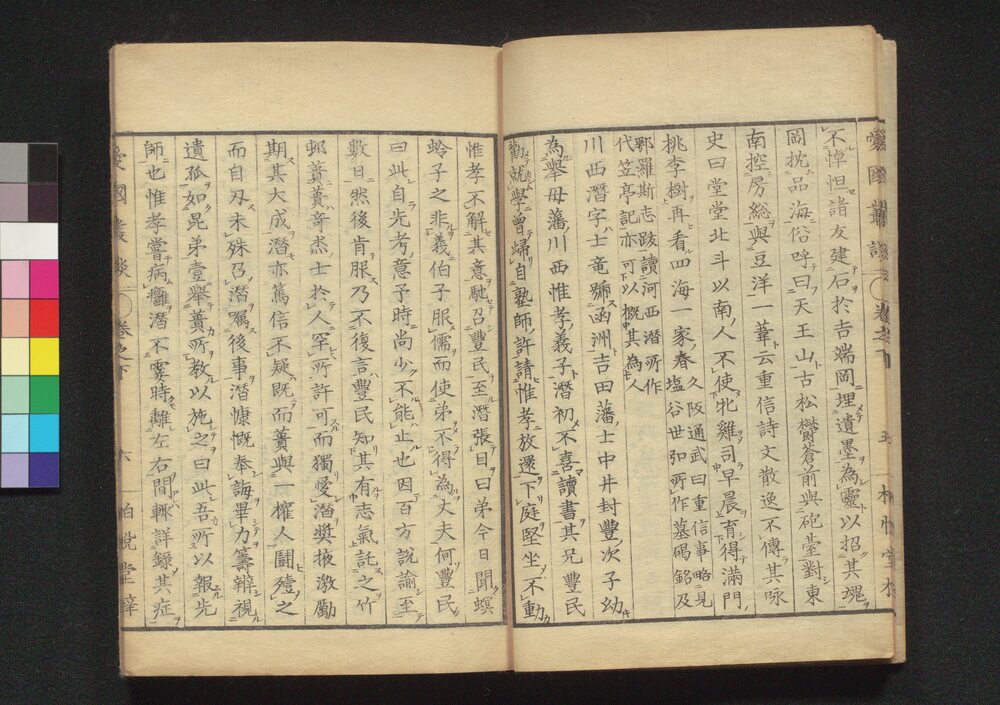 愛國叢談 卷之下 五
不悼怛諸友建石於吉端岡埋遺墨為靈以招其塊
岡枕品海俗呼曰天王山古松鬱蒼前與砲臺對東
南控房総與豆洋一葦云重信詩文散逸不傳其咏
史曰堂堂北斗以南人不使牝雞司早晨育得滿門
桃李樹再看四海一家春 久阪通武曰重信事略見塩谷世弘所作墓碣銘及
鄠羅斯志跋讀河西潛所作代笠亭記亦可以概其為人
川西潛字士竜號函洲吉田藩士中井封豐次子幼
為舉母藩川西惟孝義子潛初不喜讀書其兄豐民
勸就學曾歸自塾師許請惟孝放還下庭堅坐不動
惟孝不解其意馳召豐民至潛張目曰弟今日聞螟
蛉子之非義伯子服儒而使弟不得為丈夫何豐民
曰此自先考意予時尚少不能止也因百方說諭至
數日然後肯服乃不復言豐民知其有志氣託之竹
邨蕢蕢奇杰士於人罕所許可而獨愛潛奬掖激勵
期其大成潛亦篤信不疑既而蕢與一權人鬪殪之
而自刃未殊召潛囑後事潛慷慨奉誨畢力籌辨視
遺孤如昆弟壹舉蕢所教以施之曰此吾所以報先
師也惟孝嘗病癰潛不霎時離左右間輒詳錄其症
愛國叢談 卷之下 六